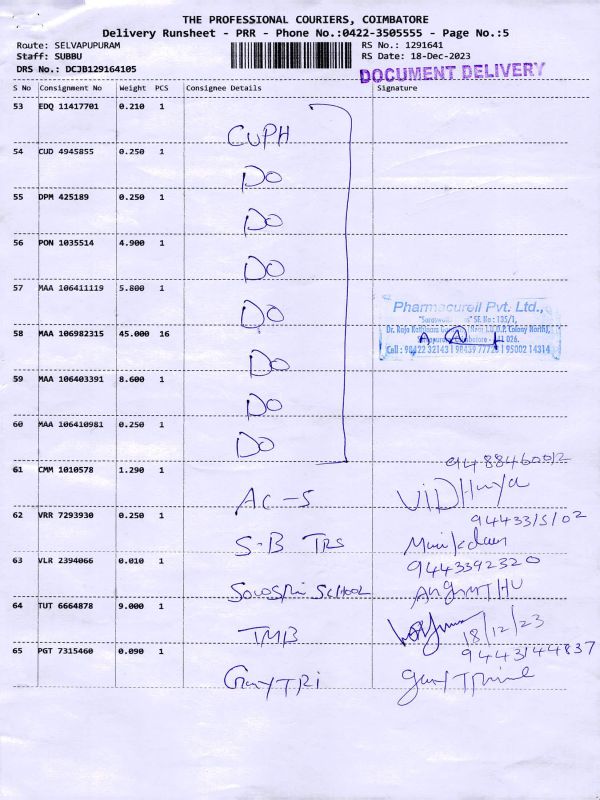 THE PROFESSIONAL COURIERS, COIMBATORE
Delivery Runsheet - PRR - Phone No.:0422-3505555 - Page No.:5
Route: SELVAPUPURAM RS No.: 1291641
Staff: SUBBU RS Date: 18-Dec-2023
DRS No.: DCJB129164105
DOCUMENT DELIVERY
S No Consignment No Weight PCS Consignee Details Signature
53 EDQ 11417701 0.210 1
CUPH
54 CUD 4945855 0.250 1
DO
55 DPM 425189 0.250 1
DO
56 PON 1035514 4.900 1
DO
57 MAA 106411119 5.800 1
DO
Pharmacureil Pvt. Ltd.,
SF. No : 135/1,
58 MAA 106982315 45.000 16
Colony North),
Cell : 98422 32143 | 98439 77728 | 95002 14314
DO
59 MAA 106403391 8.600 1
DO
60 MAA 106410981 0.250 1
DO
9488460012
61 CMM 1010578 1.290 1
AC-S
62 VRR 7293930 0.250 1
S-B TRS
63 VLR 2394066 0.010 1
9443392320
SCHOOL
64 TUT 6664878 9.000 1
TMB 18/12/23
65 PGT 7315460 0.090 1
9443144837